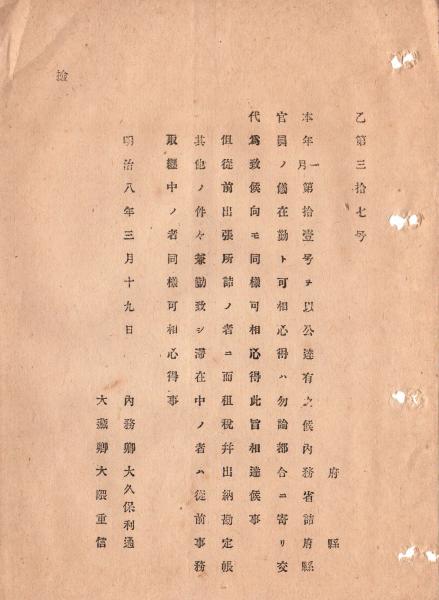 乙第三拾七号
府縣
本年一月第拾壹号ヲ以公達有之候内務省詰府縣
官員ノ儀在勤ト可相心得ハ勿論都合ニ寄リ交
代爲致候向モ同樣可相心得此旨相達候事
但從前出張所詰ノ者ニ而租税并出納勘定帳
其他ノ件々兼勤致シ滞在中ノ者ハ從前事務
取纒中ノ者同樣可相心得事
明治八年三月十九日
内務卿大久保利通
大藏卿大隈重信
檢